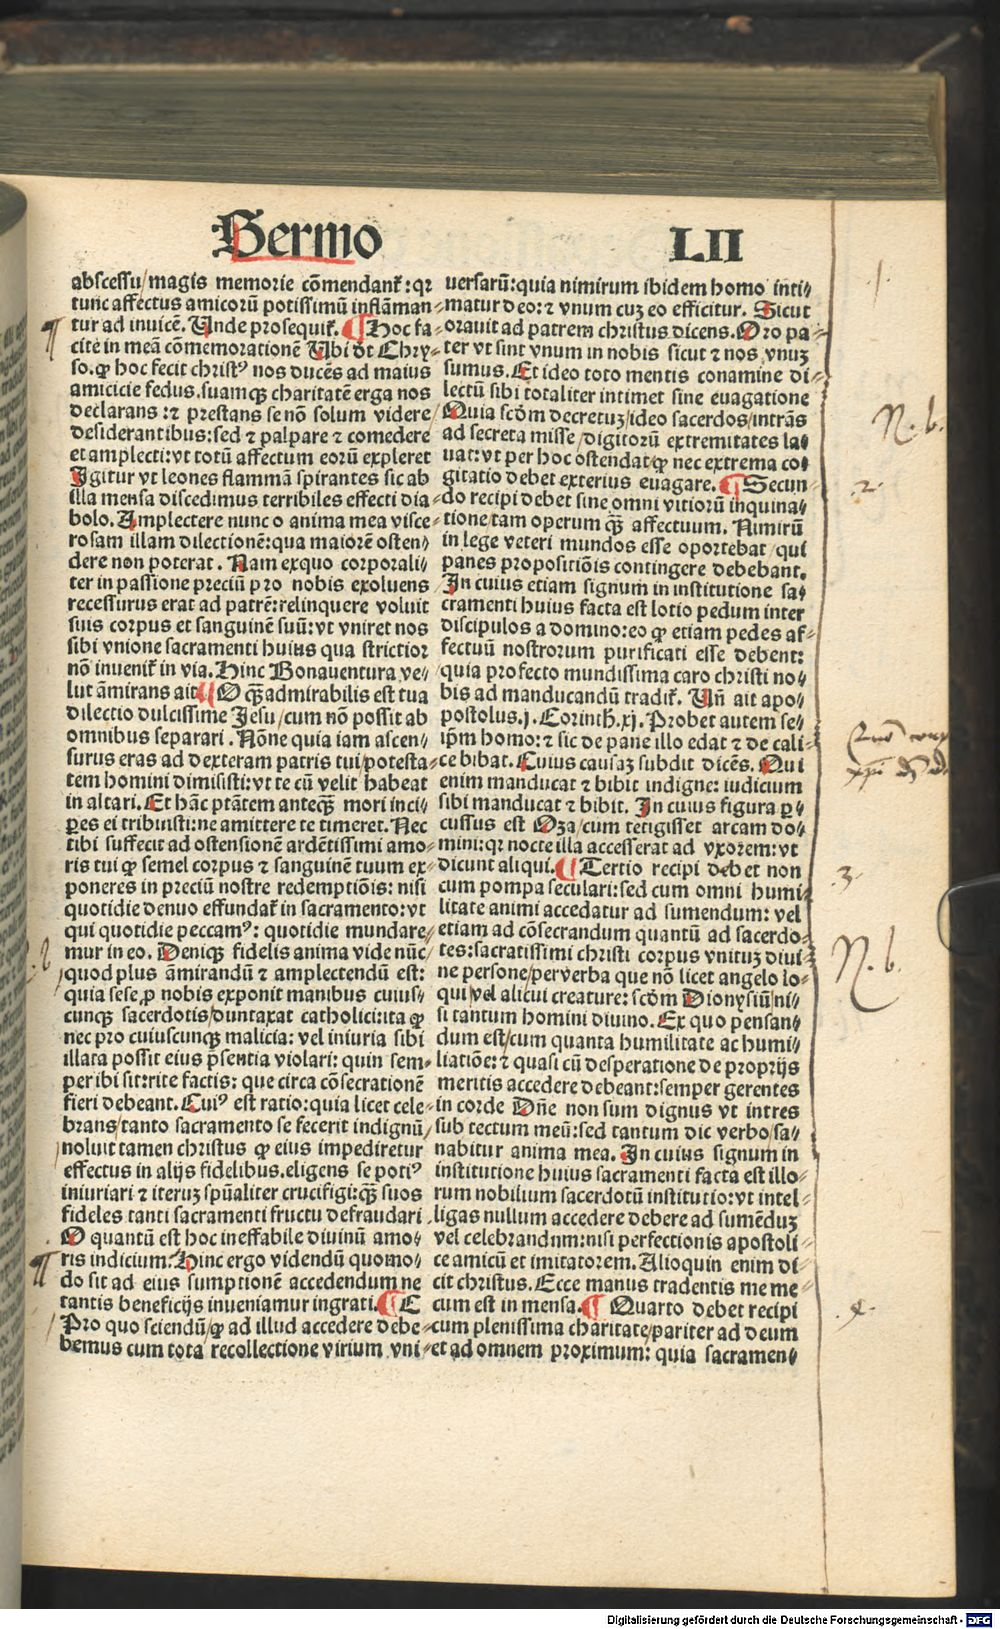 Sermo LII
abscessu/magis memorie cōmendant᷑:qꝛ
tunc affectus amicorū potissimū inflāman⸗
tur ad inuicē. Unde prosequit᷑. ¶ Hoc fa⸗
cite in meā cōmemorationē Ubi dt Chry⸗
so. ꝙ hoc fecit christꝰ nos ducēs ad maius
amicicie fedus. suamqꝫ charitatē erga nos
declarans: ⁊ prestans se nō solum videre
desiderantibus: sed ⁊ palpare ⁊ comedere
et amplecti: vt totū affectum eorū expleret
Igitur vt leones flammā spirantes sic ab
illa mensa discedimus terribiles effecti dia⸗
bolo. Amplectere nunc o anima mea visce⸗
rosam illam dilectionē: qua maiorē osten⸗
dere non poterat. Nam exquo corporali⸗
ter in passione preciū pro nobis exoluens
recessurus erat ad patrē: relinquere voluit
suis corpus et sanguinē suū: vt vniret nos
sibi vnione sacramenti huius qua strictior
nō inuenit᷑ in via. Hinc Bonauentura ve⸗
lut āmirans ait ¶ O qꝫ̄ admirabilis est tua
dilectio dulcissime Jesu/cum nō possit ab
omnibus separari. Nōne quia iam ascen⸗
surus eras ad dexteram patris tui/potesta⸗
tem homini dimisisti: vt te cū velit habeat
in altari. Et hāc ptātem anteqꝫ̄ mori inci⸗
peres ei tribuisti: ne amittere te timeret. Nec
tibi suffecit ad ostensionē ardētissimi amo⸗
ris tui ꝙ semel corpus ⁊ sanguinē tuum ex⸗
poneres in preciū nostre redemptiōis: nisi
quotidie denuo effundat᷑ in sacramento: vt
qui quotidie peccamꝰ: quotidie mundare⸗
mur in eo. Deniqꝫ fidelis anima vide nūc
quod plus āmirandū ⁊ amplectendū est:
quia sese ꝓ nobis exponit manibus cuius⸗
cunqꝫ sacerdotis/duntaxat catholici: ita ꝙ
nec pro cuiuscunqꝫ malicia: vel iniuria sibi
illata possit eius p̄sentia violari: quin sem⸗
per ibi sit: rite factis: que circa cōsecrationē
fieri debeant. Cuiꝰ est ratio: quia licet cele⸗
brans/tanto sacramento se fecerit indignū/
noluit tamen christus ꝙ eius impediretur
effectus in alijs fidelibus. eligens se potiꝰ
iniuriari ⁊ iteruꝫ spūaliter crucifigi: qꝫ̄ suos
fideles tanti sacramenti fructu defraudari.
O quantū est hoc ineffabile diuinū amo⸗
ris indicium. Hinc ergo videndū quomo⸗
do sit ad eius sumptionē accedendum ne
tantis beneficijs inueniamur ingrati. ¶ E
Pro quo sciendū/ꝙ ad illud accedere debe⸗
bemus cum tota recollectione virium vni⸗
uersarū: quia nimirum ibidem homo inti⸗
matur deo: ⁊ vnum cuꝫ eo efficitur. Sicut
orauit ad patrem christus dicens. Oro pa⸗
ter vt sint vnum in nobis sicut ⁊ nos vnuꝫ
sumus. Et ideo toto mentis conamine di⸗
lectū sibi totaliter intimet sine euagatione
Quia scōm decretuꝫ/ideo sacerdos/intrās
ad secreta misse/digitorū extremitates la⸗
uat: vt per hoc ostendat ꝙ nec extrema co⸗
gitatio debet exterius euagare. ¶ Secun⸗
do recipi debet sine omni vitiorū inquina⸗
tione/tam operum qꝫ̄ affectuum. Nimirū
in lege veteri mundos esse oportebat/qui
panes propositiōis contingere debebant.
In cuius etiam signum in institutione sa⸗
cramenti huius facta est lotio pedum inter
discipulos a domino: eo ꝙ etiam pedes af⸗
fectuū nostrorum purificati esse debent:
quia profecto mundissima caro christi no⸗
bis ad manducandū tradit᷑. Uñ ait apo⸗
postolus. j. Corinth. xj. Probet autem se⸗
ip̄m homo: ⁊ sic de pane illo edat ⁊ de cali⸗
ce bibat. Cuius causaꝫ subdit dicēs. Qui
enim manducat ⁊ bibit indigne: iudicium
sibi manducat ⁊ bibit. In cuius figura ꝑ⸗
cussus est Oza/cum tetigisset arcam do⸗
mini: qꝛ nocte illa accesserat ad vxorem: vt
dicunt aliqui. ¶ Tertio recipi debet non
cum pompa seculari: sed cum omni humi⸗
litate animi accedatur ad sumendum: vel
etiam ad cōsecrandum quantū ad sacerdo⸗
tes: sacratissimi christi corpus vnituꝫ diui⸗
ne persone/per verba que nō licet angelo lo⸗
qui/vel alicui creature: scōm Dionysiū/ni⸗
si tantum homini diuino. Ex quo pensan⸗
dum est/cum quanta humilitate ac humi⸗
liatiōe: ⁊ quasi cū desperatione de proprijs
meritis accedere debeant: semper gerentes
in corde Dñe non sum dignus vt intres
sub tectum meū: sed tantum dic verbo/sa⸗
nabitur anima mea. In cuius signum in
institutione huius sacramenti facta est illo⸗
rum nobilium sacerdotū institutio: vt intel⸗
ligas nullum accedere debere ad sumēduꝫ
vel celebrandum: nisi perfectionis apostoli⸗
ce amicū et imitatorem. Alioquin enim di⸗
cit christus. Ecce manus tradentis me me⸗
cum est in mensa. ¶ Quarto debet recipi
cum plenissima charitate/pariter ad deum
et ad omnem proximum: quia sacramen⸗
1.
N. b.
.2.
.3.
N. b.
.4.
Digitalisierung gefördert durch die Deutsche Forschungsgemeinschaft - DFG